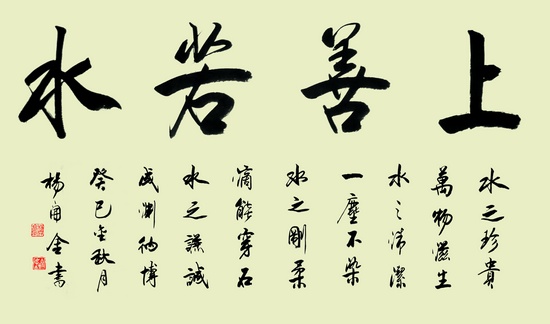 上善若水
水之珍貴
萬物滋生
水之清潔
一塵不染
水之剛柔
滴能穿石
水之謙誠
淵納博
癸巳金秋月
楊金書